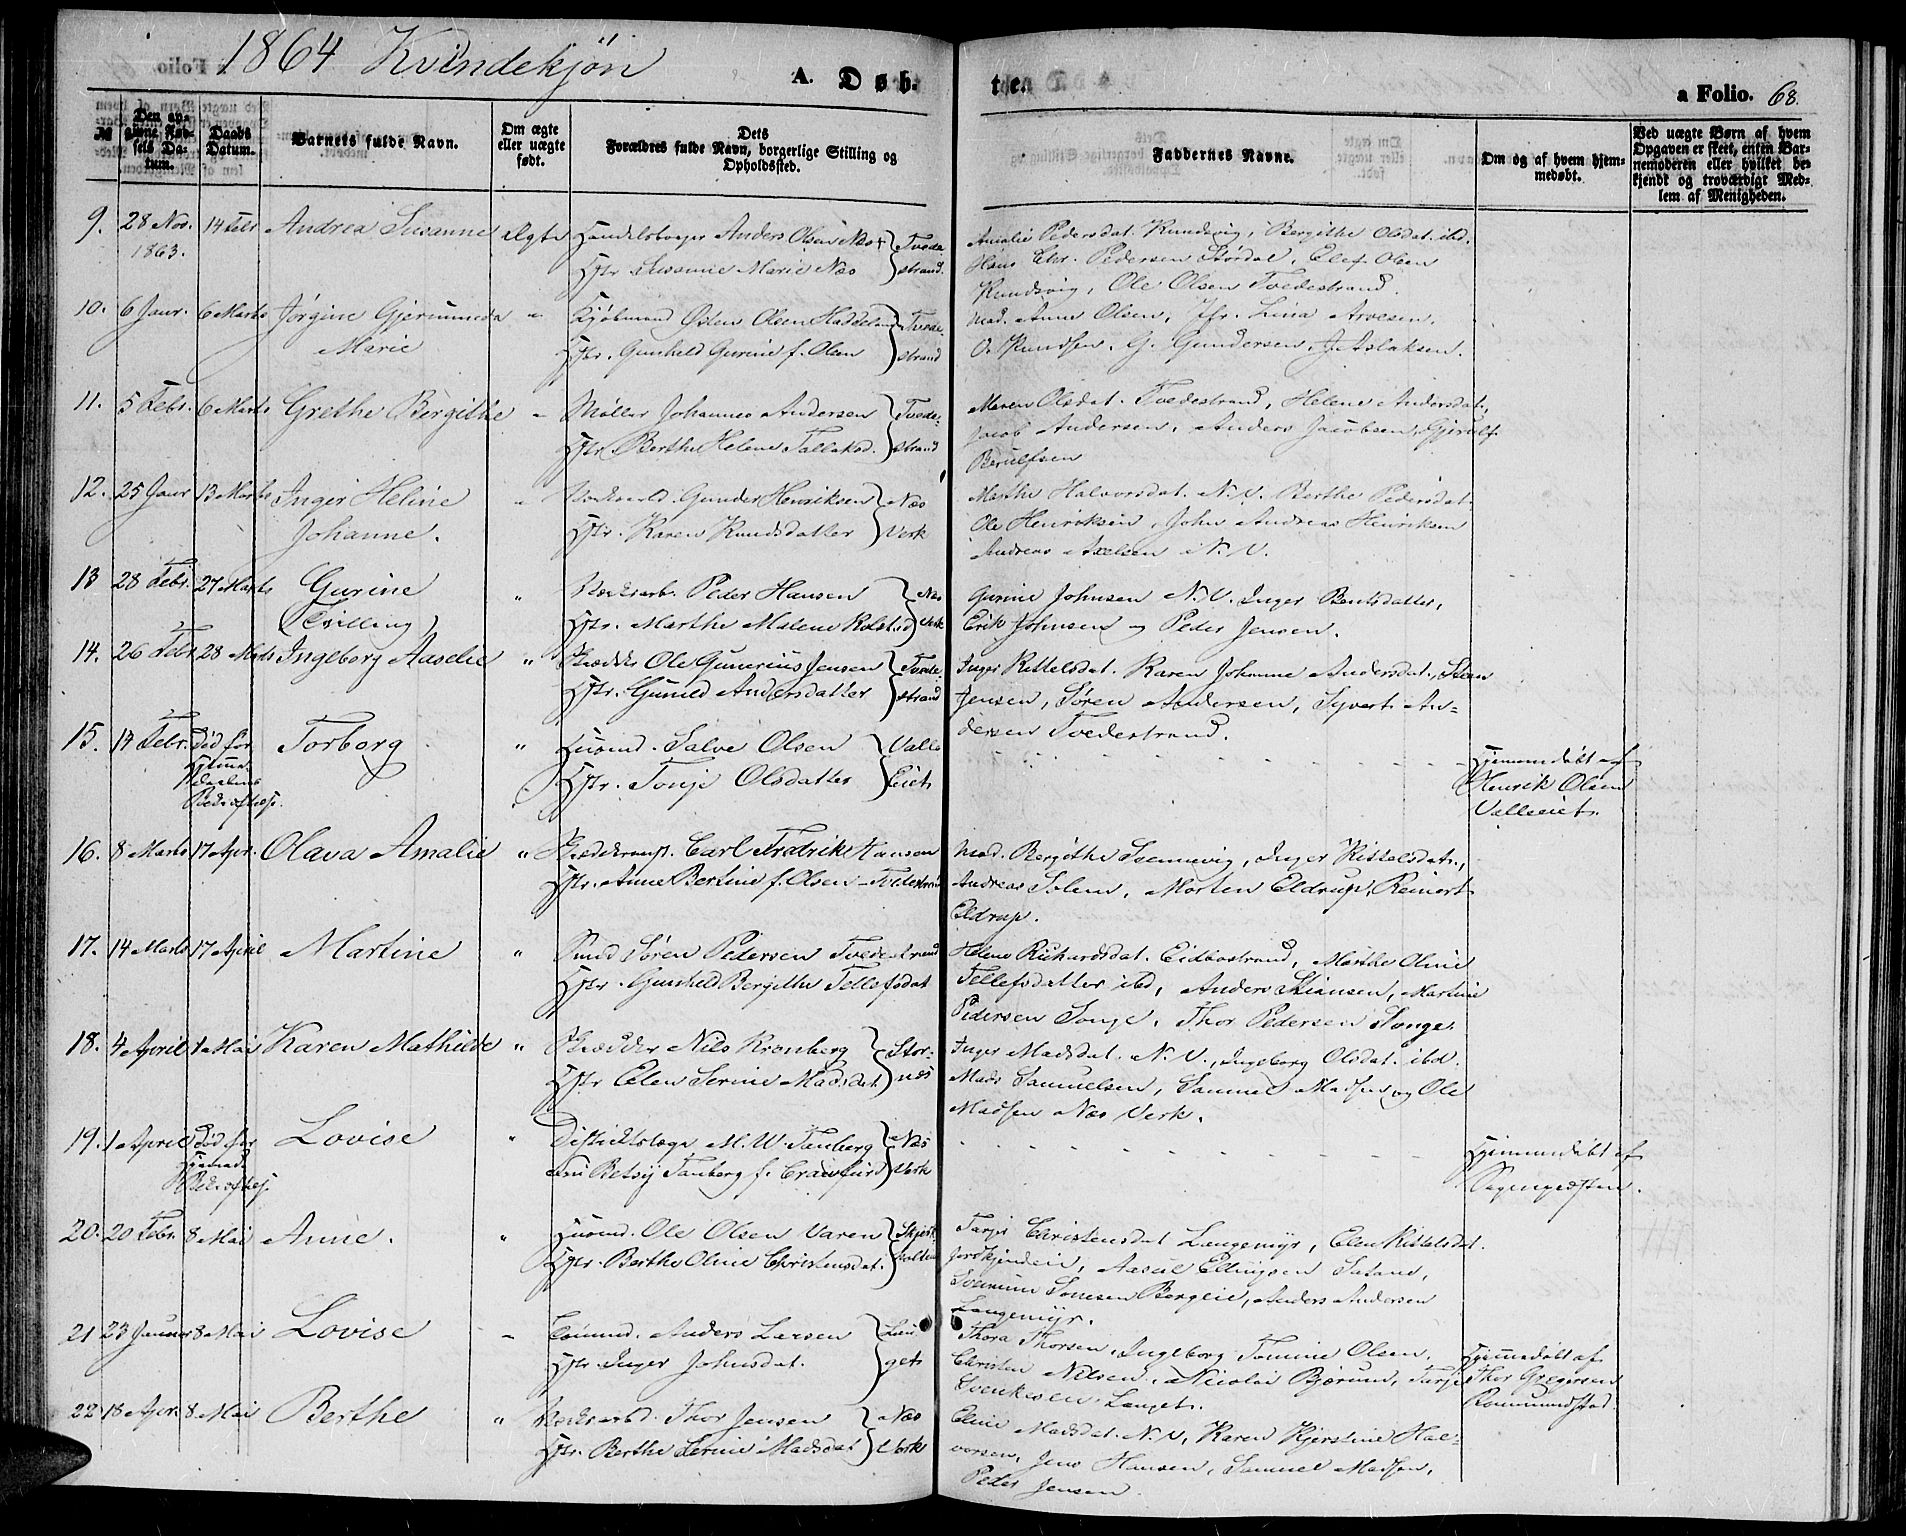 1864 Kvindekjøn
A. Døb-
te.
a Folio. 68.
№
Den opgivne Fødsels Datum.
Daabs Datum.
Barnets fulde Navn.
Om ægte eller uægte født.
Dets Forældres fulde Navn, borgerlige Stilling og Opholdssted.
Faddernes Navne.
Om og af hvem hjemmedøbt.
Ved uægte Børn af hvem Opgaven er skeet, enten Barnemoderen eller hvilket bekjendt og troværdigt Medlem af Menigheden.
9. 28 Nov. 1863. 14 Febr Andrea Susanne Ægte
Anders Olsen Næs
Hstr. Susanne Marie Næs
Tvedestrand.
Amalie Pedersdat. Knudsvig, Bergithe Olsdat. ibd.
Hans Chr. Pedersen Stordal, Elef Olsen
Knudsvig, Ole Olsen Tvedestrand.
10. 6 Janr. 6 Marts Jørgine Gjerumine
Marie
Kjøbmand Osten Olsen
Hstr. Gunhild Gurine f. Olsen
Tvedestrand
Mad. Anne Olsen, Jfr. Lina Arvesen,
O. Knudsen, G. Gundersen, J. Aslaksen.
11. 5 Febr. 6 Marts Grethe Bergithe
Møller Johannes Andersen
Hstr. Berthe Helene Tallaksd.
Tvedestrand
Maren Olsdat. Tvedestrand, Helene Andersdat.,
Jacob Andersen, Anders Jacobsen, Gjerulf
Berulfsen
12. 25 Janr 13 Marts Inger Heline
Johanne.
Gunder Henriksen
Hstr. Karen Knudsdatter
Næs Verk
Marthe Halvorsdat. N.V. Berthe Pedersdat.
Ole Henriksen, John Andreas Henriksen
Andreas Axelsen N.V.
13 28 Febr. 27 Marts Gurine
(Tvilling)
Verksarb. Peder Hansen
Hstr. Marthe Malene
Næs Verk
Gurine Johnsen N.V. Inger Bentsdatter,
Erik Johnsen og Peder Jensen.
14. 26 Febr 28 Marts Ingeborg Aaselie "
Skrædder Ole Gunerius Jensen
Hstr. Gunild Andersdatter
Tvedestrand
Inger Kittelsdat. Karen Johanne Andersdat., Steen
Jensen, Søren Andersen, Syvert An-
dersen Tvedestrand.
15. 14 Febr. Død før
Torborg "
Husmd. Salve Olsen
Hstr. Tonje Olsdatter
Valle Eiet
Hjemmedøbt af
Henrik Olsen
Valleeiet.
16. 8 Marts 17 Apr. Olava Amalie "
Carl Fredrik Hansen
Hstr. Anne Bertine f. Olsen - Tvedestrand
Mad. Bergithe Svennevig, Inger Kittelsdat.,
Andreas Solem, Morten Eldrup, Reinert
Eldrup.
17. 14 Marts 17 April Martine "
Smed Søren Pedersen Tvedestrand
Hstr. Gunhild Bergithe Tellefsdat
Helene Richardsdat. Eidbostrand, Marthe Oline
Tellefsdatter ibd, Anders Stiansen, Martine
Pedersen Songe, Thor Pedersen Songe.
18. 4 April 1 Mai Karen Mathilde "
Skrædder Nils Kronberg
Hstr Elen Serine Madsdat.
Stornæs
Inger Madsdat. N.V., Ingeborg Olsdat. ibd.
Mads Samuelsen, Samuel Madsen og Ole
Madsen Næs Verk.
19. 1 April Død før
Lovise "
Distriktslæge M. W. Tanberg
Fru Betsy Tanberg f. Crawfurd
Næs Verk
Hjemmedøbt af
Sognepræsten.
20. 20 Febr. 8 Mai Anne. "
Husmd. Ole Olsen Varen
Hstr. Berthe Oline Christensdat.
Tarjer Christensdat Langemyr, Elen Kittelsdat.
Aasul Ellingsen
Sørensen Bergeie, Anders Andersen
Langemyr.
21 23 Januar 8 Mai Lovise
Anders Larsen
Hstr. Inger Johnsdat.
Langet
Thora Thorsen, Ingeborg Tomine Olsen,
Christen Nilsen, Nicolai Bjorund, Tarje
Svenkesen, Langet.
Hjemmedøbt af
Thor Gregersen
Romundstad.
22 18 Apr. 8 Mai Berthe "
Verksarbd. Thor Jensen
Hstr. Berthe Serine Madsdat
Næs Verk
Eline Madsdat. N.V, Karen Kjerstine Hal-
vorsen, Jens Hansen, Samuel Madsen,
Peder Jensen.